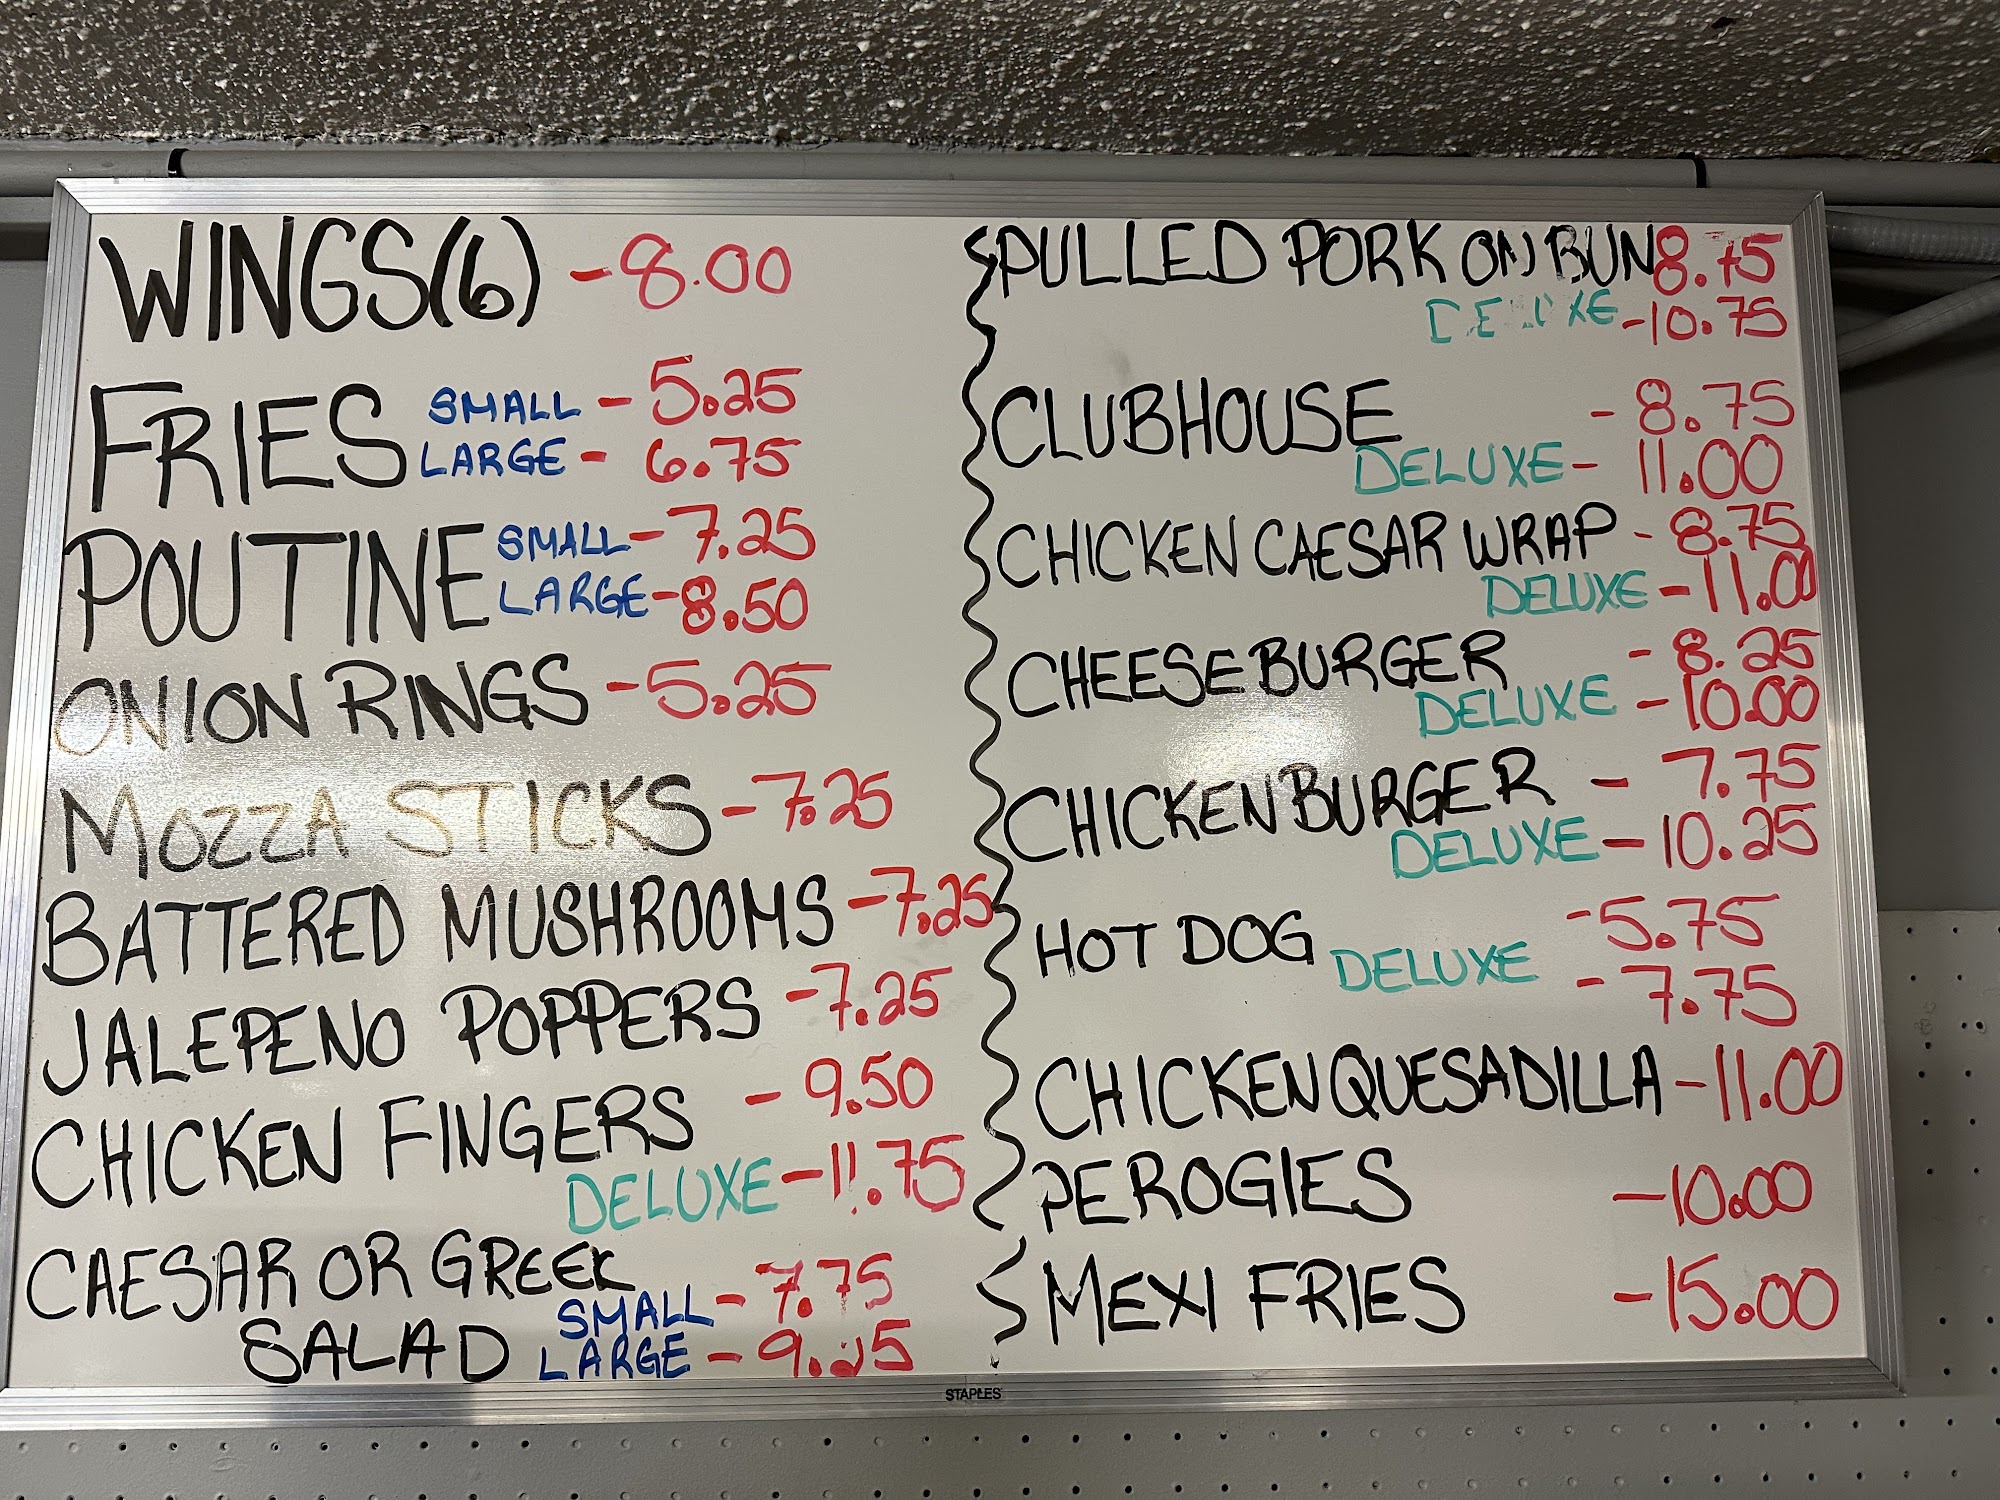 WINGS(6) - 8.00
FRIES SMALL - 5.25
LARGE - 6.75
POUTINE SMALL - 7.25
LARGE - 8.50
ONION RINGS - 5.25
MOZZA STICKS - 7.25
BATTERED MUSHROOMS - 7.25
JALEPENO POPPERS - 7.25
CHICKEN FINGERS - 9.50
DELUXE - 11.75
CAESAR OR GREEK
SALAD SMALL - 7.75
LARGE - 9.25
PULLED PORK ON BUN 8.75
DELUXE - 10.75
CLUBHOUSE - 8.75
DELUXE - 11.00
CHICKEN CAESAR WRAP - 8.75
DELUXE - 11.00
CHEESE BURGER - 8.25
DELUXE - 10.00
CHICKEN BURGER - 7.75
DELUXE - 10.25
HOT DOG - 5.75
DELUXE - 7.75
CHICKEN QUESADILLA - 11.00
PEROGIES - 10.00
MEXI FRIES - 15.00
STAPLES